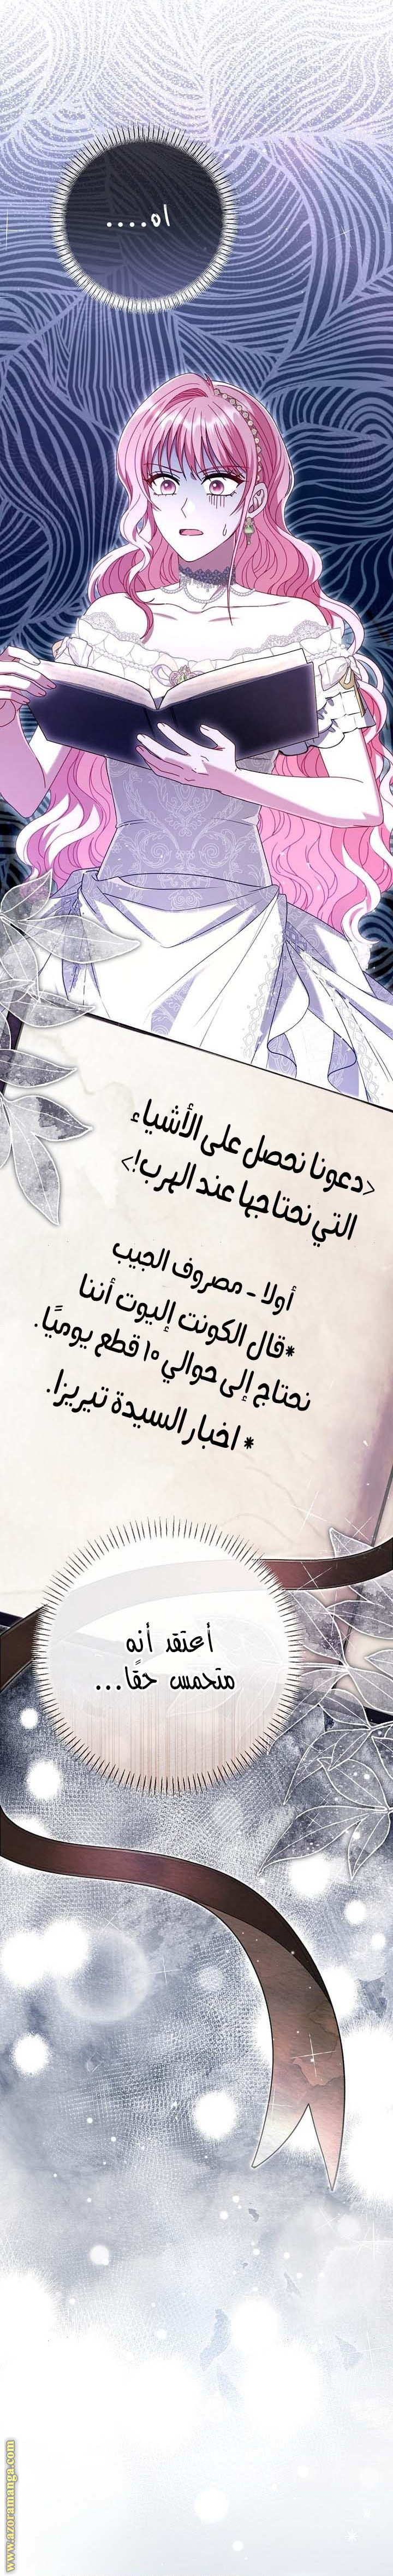 اه....
<دعونا نحصل على الأشياء
التي نحتاجها عند الهرب!>
أولا - مصروف الجيب
*قال الكونت إليوت أننا
نحتاج إلى حوالي ١٠ قطع يوميًا.
* اخبار السيدة تيريزا.
أعتقد أنه
متحمس حقًا...
www.azoramanga.com